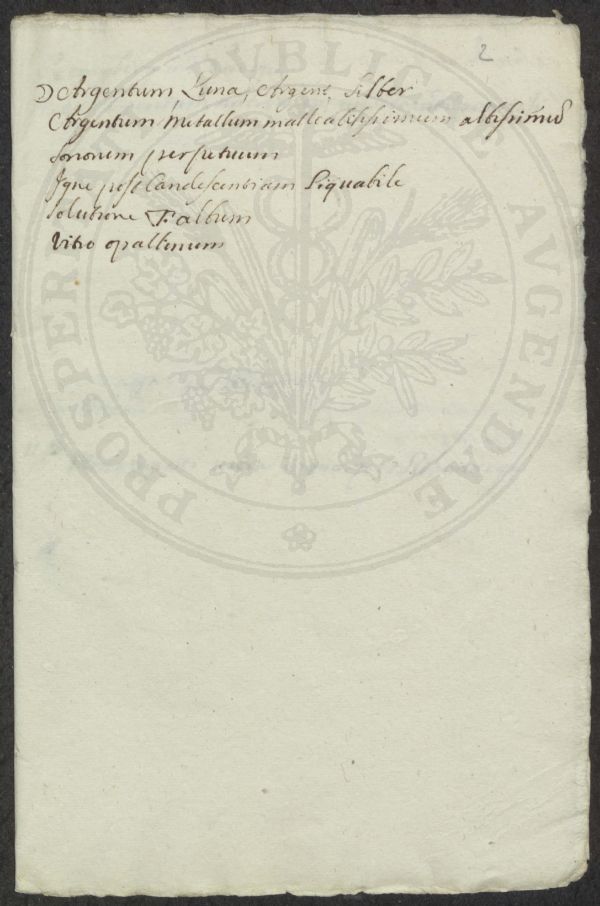 2
☽ Argentum Luna, Argent, Silber
Argentum Metallum malleabilissimum albissimũ
sonorum perpetuum
Igne post Candescentiam Liquabile
solutione album
Vitro opallinum
PROSPERITATI PVBLICAE AVGENDAE